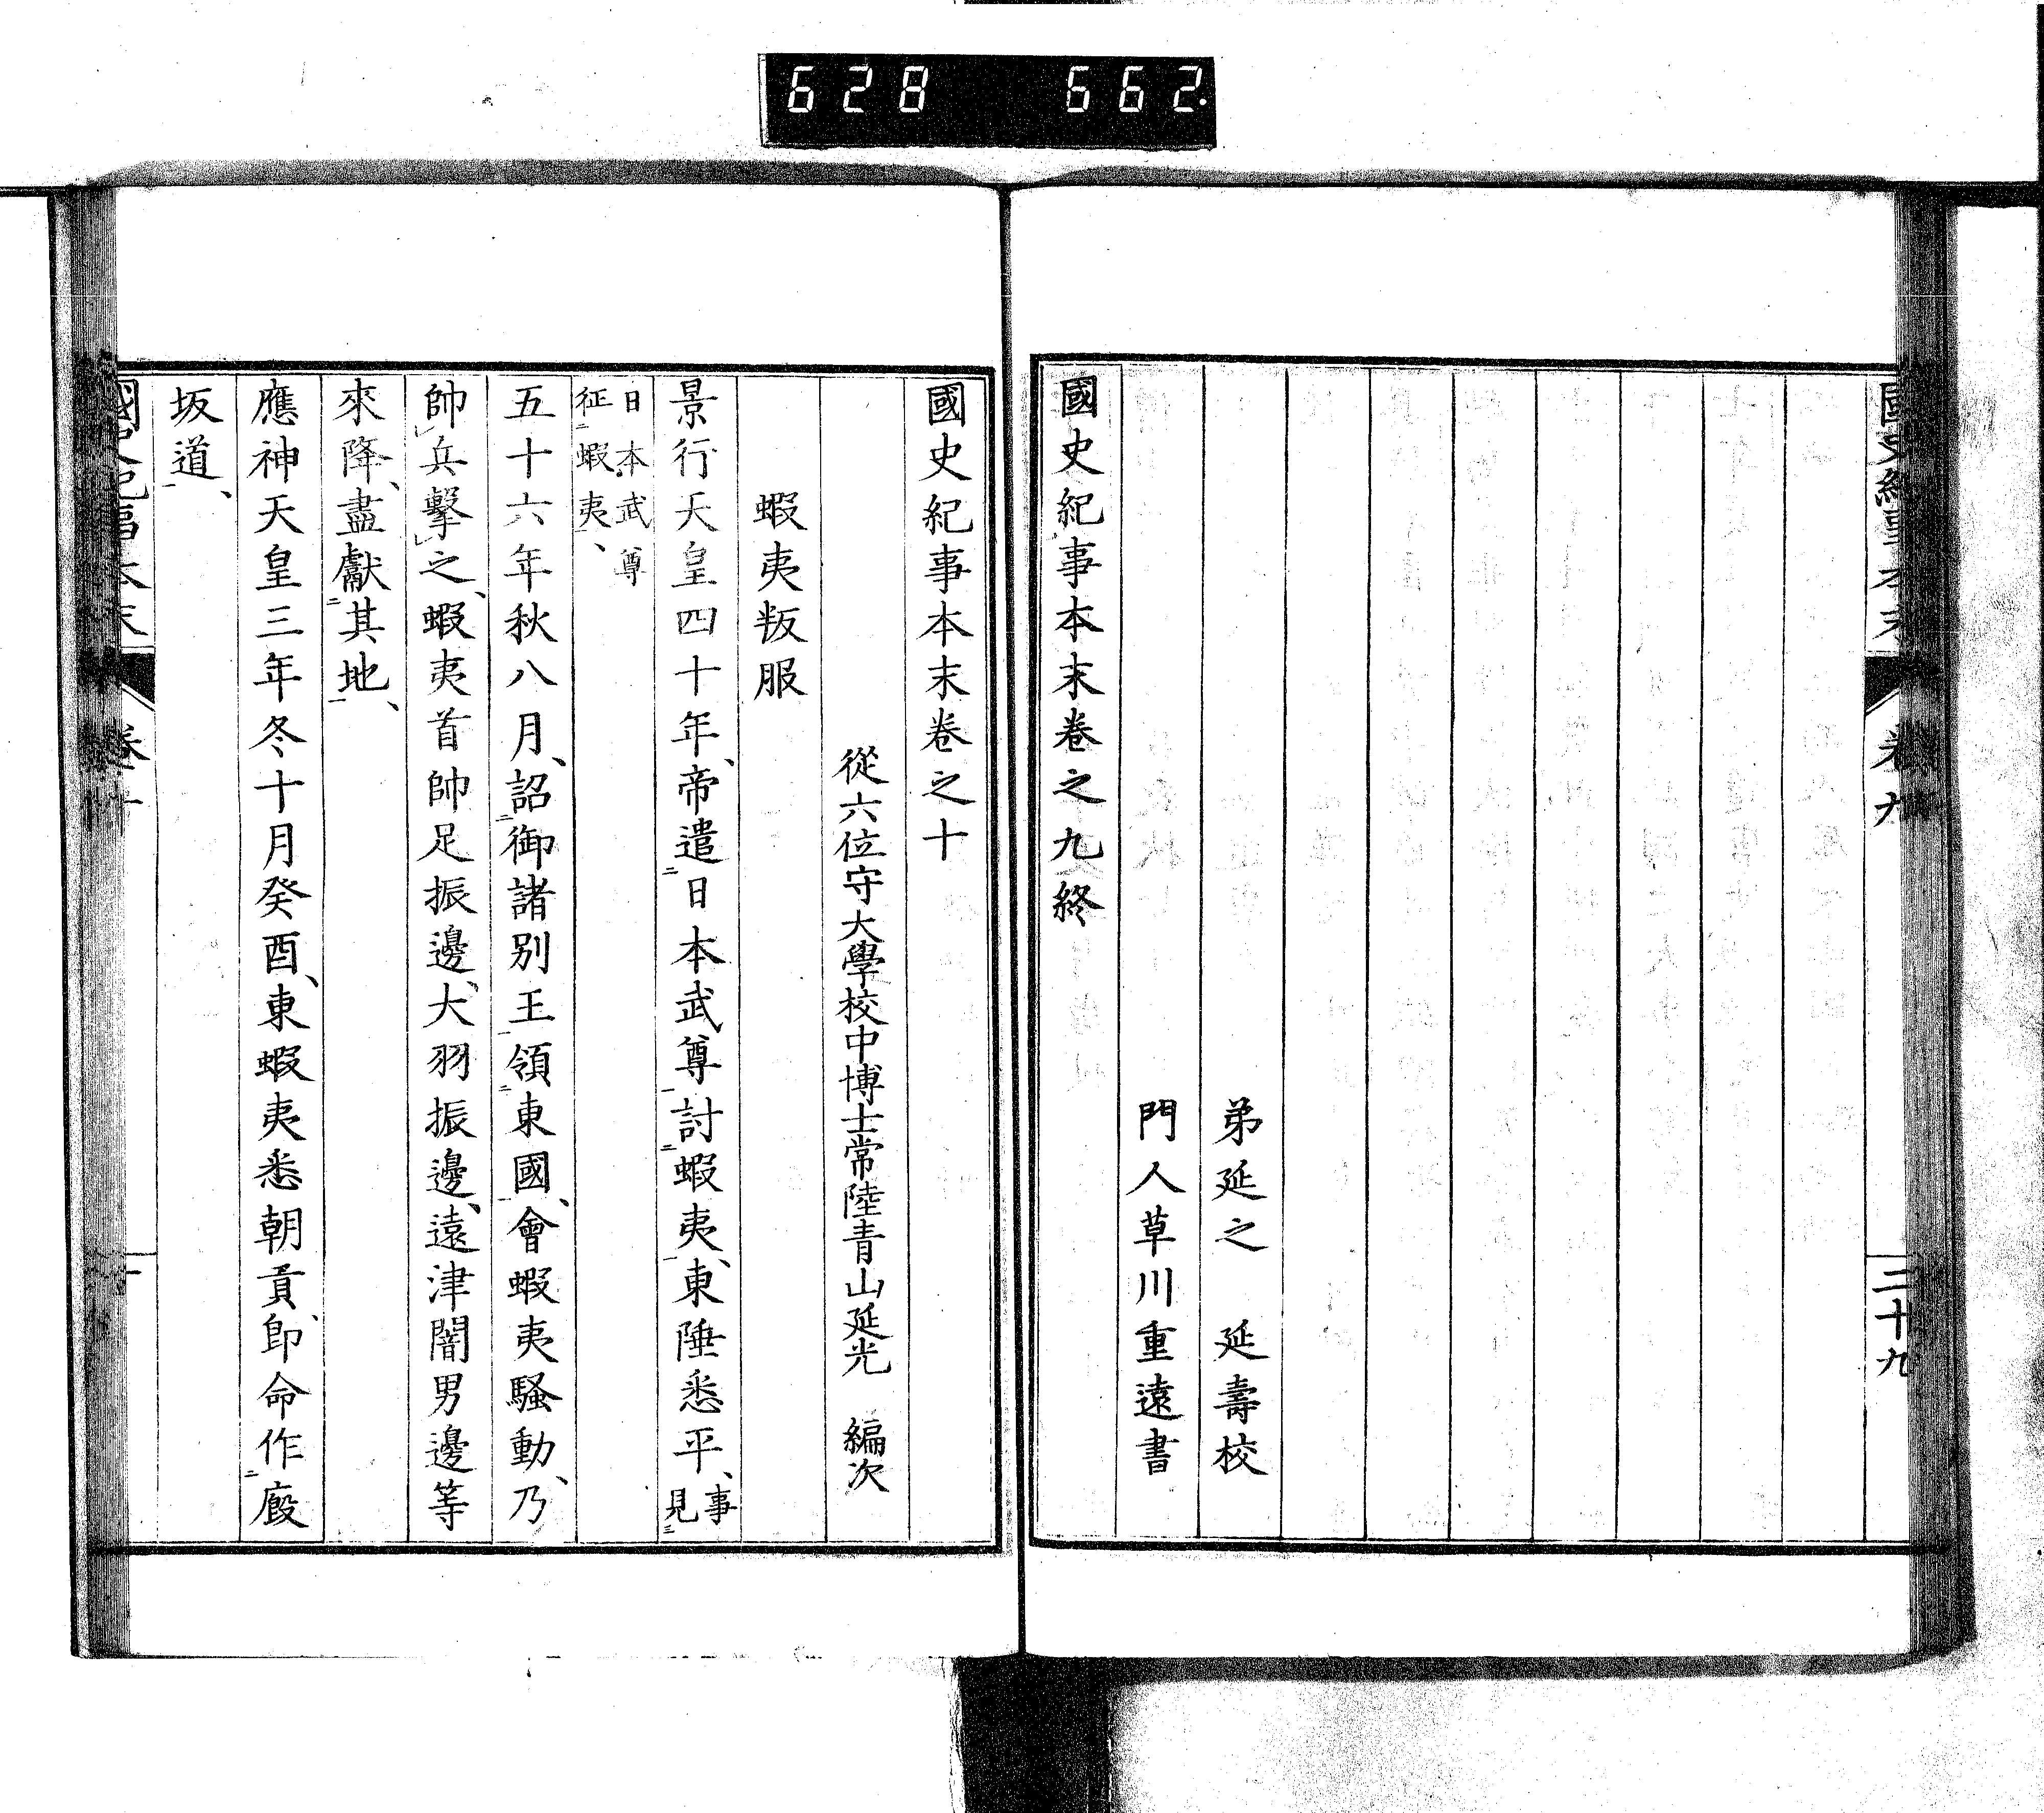 628 662.
國史紀事本末 卷九 二十九
弟延之 延壽校
門人草川重遠書
國史紀事本末卷之九終
國史紀事本末卷之十
從六位守大學校中博士常陸青山延光 編次
蝦夷叛服
景行天皇四十年、帝遣二日本武尊一討二蝦夷一、東陲悉平、事見三
日本武尊
征二蝦夷一、
五十六年秋八月、詔二御諸別王一領二東國一、會蝦夷騷動、乃
帥レ兵擊レ之、蝦夷首帥足振邊、大羽振邊、遠津闇男邊等
來降、盡獻二其地一、
應神天皇三年冬十月癸酉、東蝦夷悉朝貢、卽命作二廄
坂道一、
國史紀事本末 卷十 一